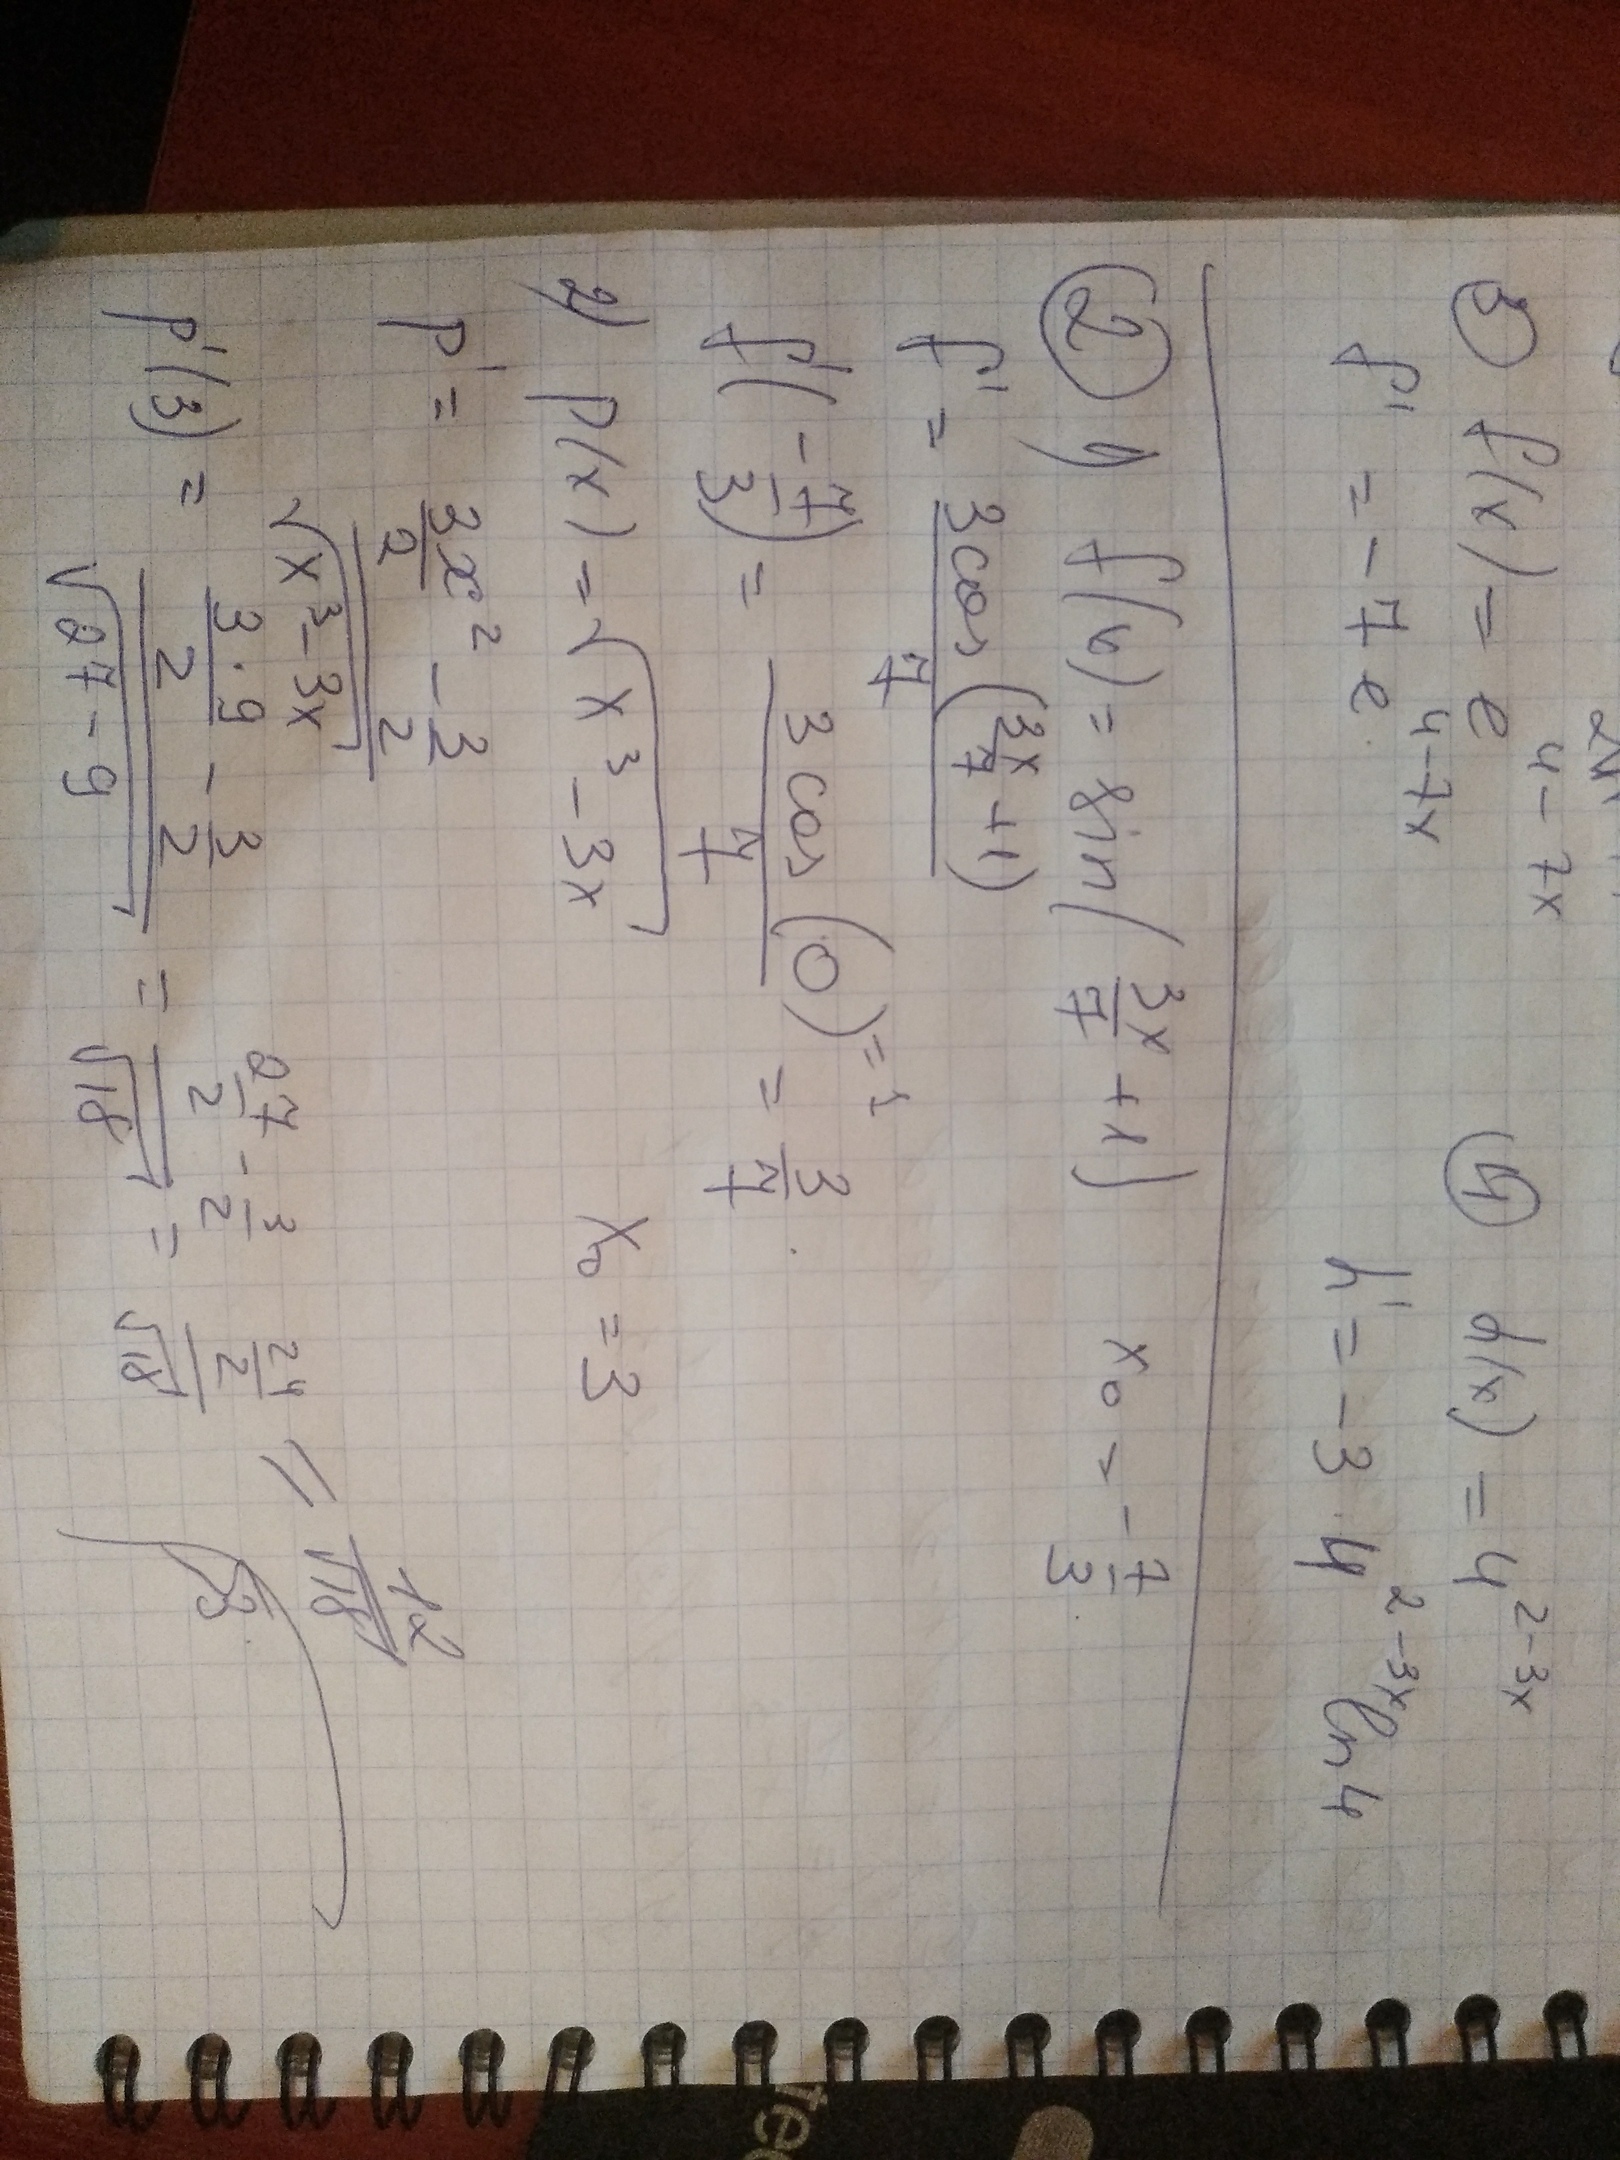 3 f(x) = e^{4-7x}
f' = -7e^{4-7x}
4 h(x) = 4^{2-3x}
h' = -3 · 4^{2-3x} ln 4
2 1) f(x) = sin(\frac{3x}{7} + 1) x_0 = -\frac{7}{3}
f' = \frac{3cos(\frac{3x}{7} + 1)}{7}
f'(-\frac{7}{3}) = \frac{3cos(0)}{7}^{=1} = \frac{3}{7}
2) p(x) = \sqrt{x^3 - 3x} x_0 = 3
p' = \frac{\frac{3}{2}x^2 - \frac{3}{2}}{\sqrt{x^3 - 3x}}
p'(3) = \frac{\frac{3·9}{2} - \frac{3}{2}}{\sqrt{27 - 9}} = \frac{\frac{27}{2} - \frac{3}{2}}{\sqrt{18}} = \frac{\frac{24}{2}}{\sqrt{18}} = \frac{12}{\sqrt{18}}